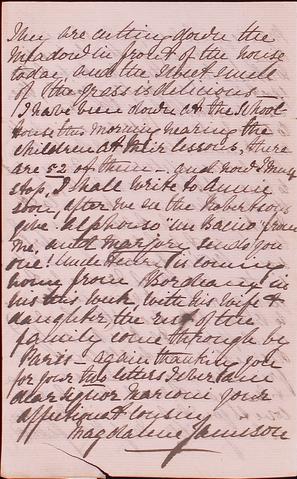 They are cutting down the
Meadow in front of the house
today, and the sweet smell
of the grass is delicious -
I have been down at the School-
house this morning hearing the
children at their lessons, there
are 52 of them - and now I must
stop, I shall write to Annie
soon, after me on the Robertsons
give Alphonso "un Bacio" from
me, until Marjory sends you
one! Uncle is coming
home from Bordeaux in
his this week, with his wife &
daughter, the rest of the
family come through by
Paris - again thanking you
for your two letters I ever am
dear Signor Marconi your
affectionate & loving
Magdalene Jameson